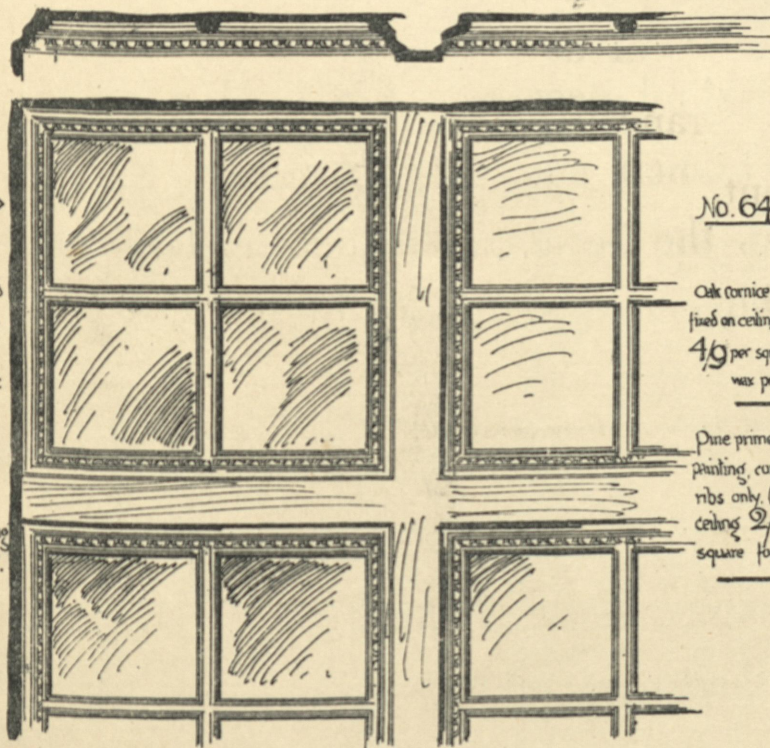 No. 64
Oak cornice
fixed on ceiling
4/9 per sq
wax po
Pine prime
painting, co
ribs only.
ceiling 2/
square fo